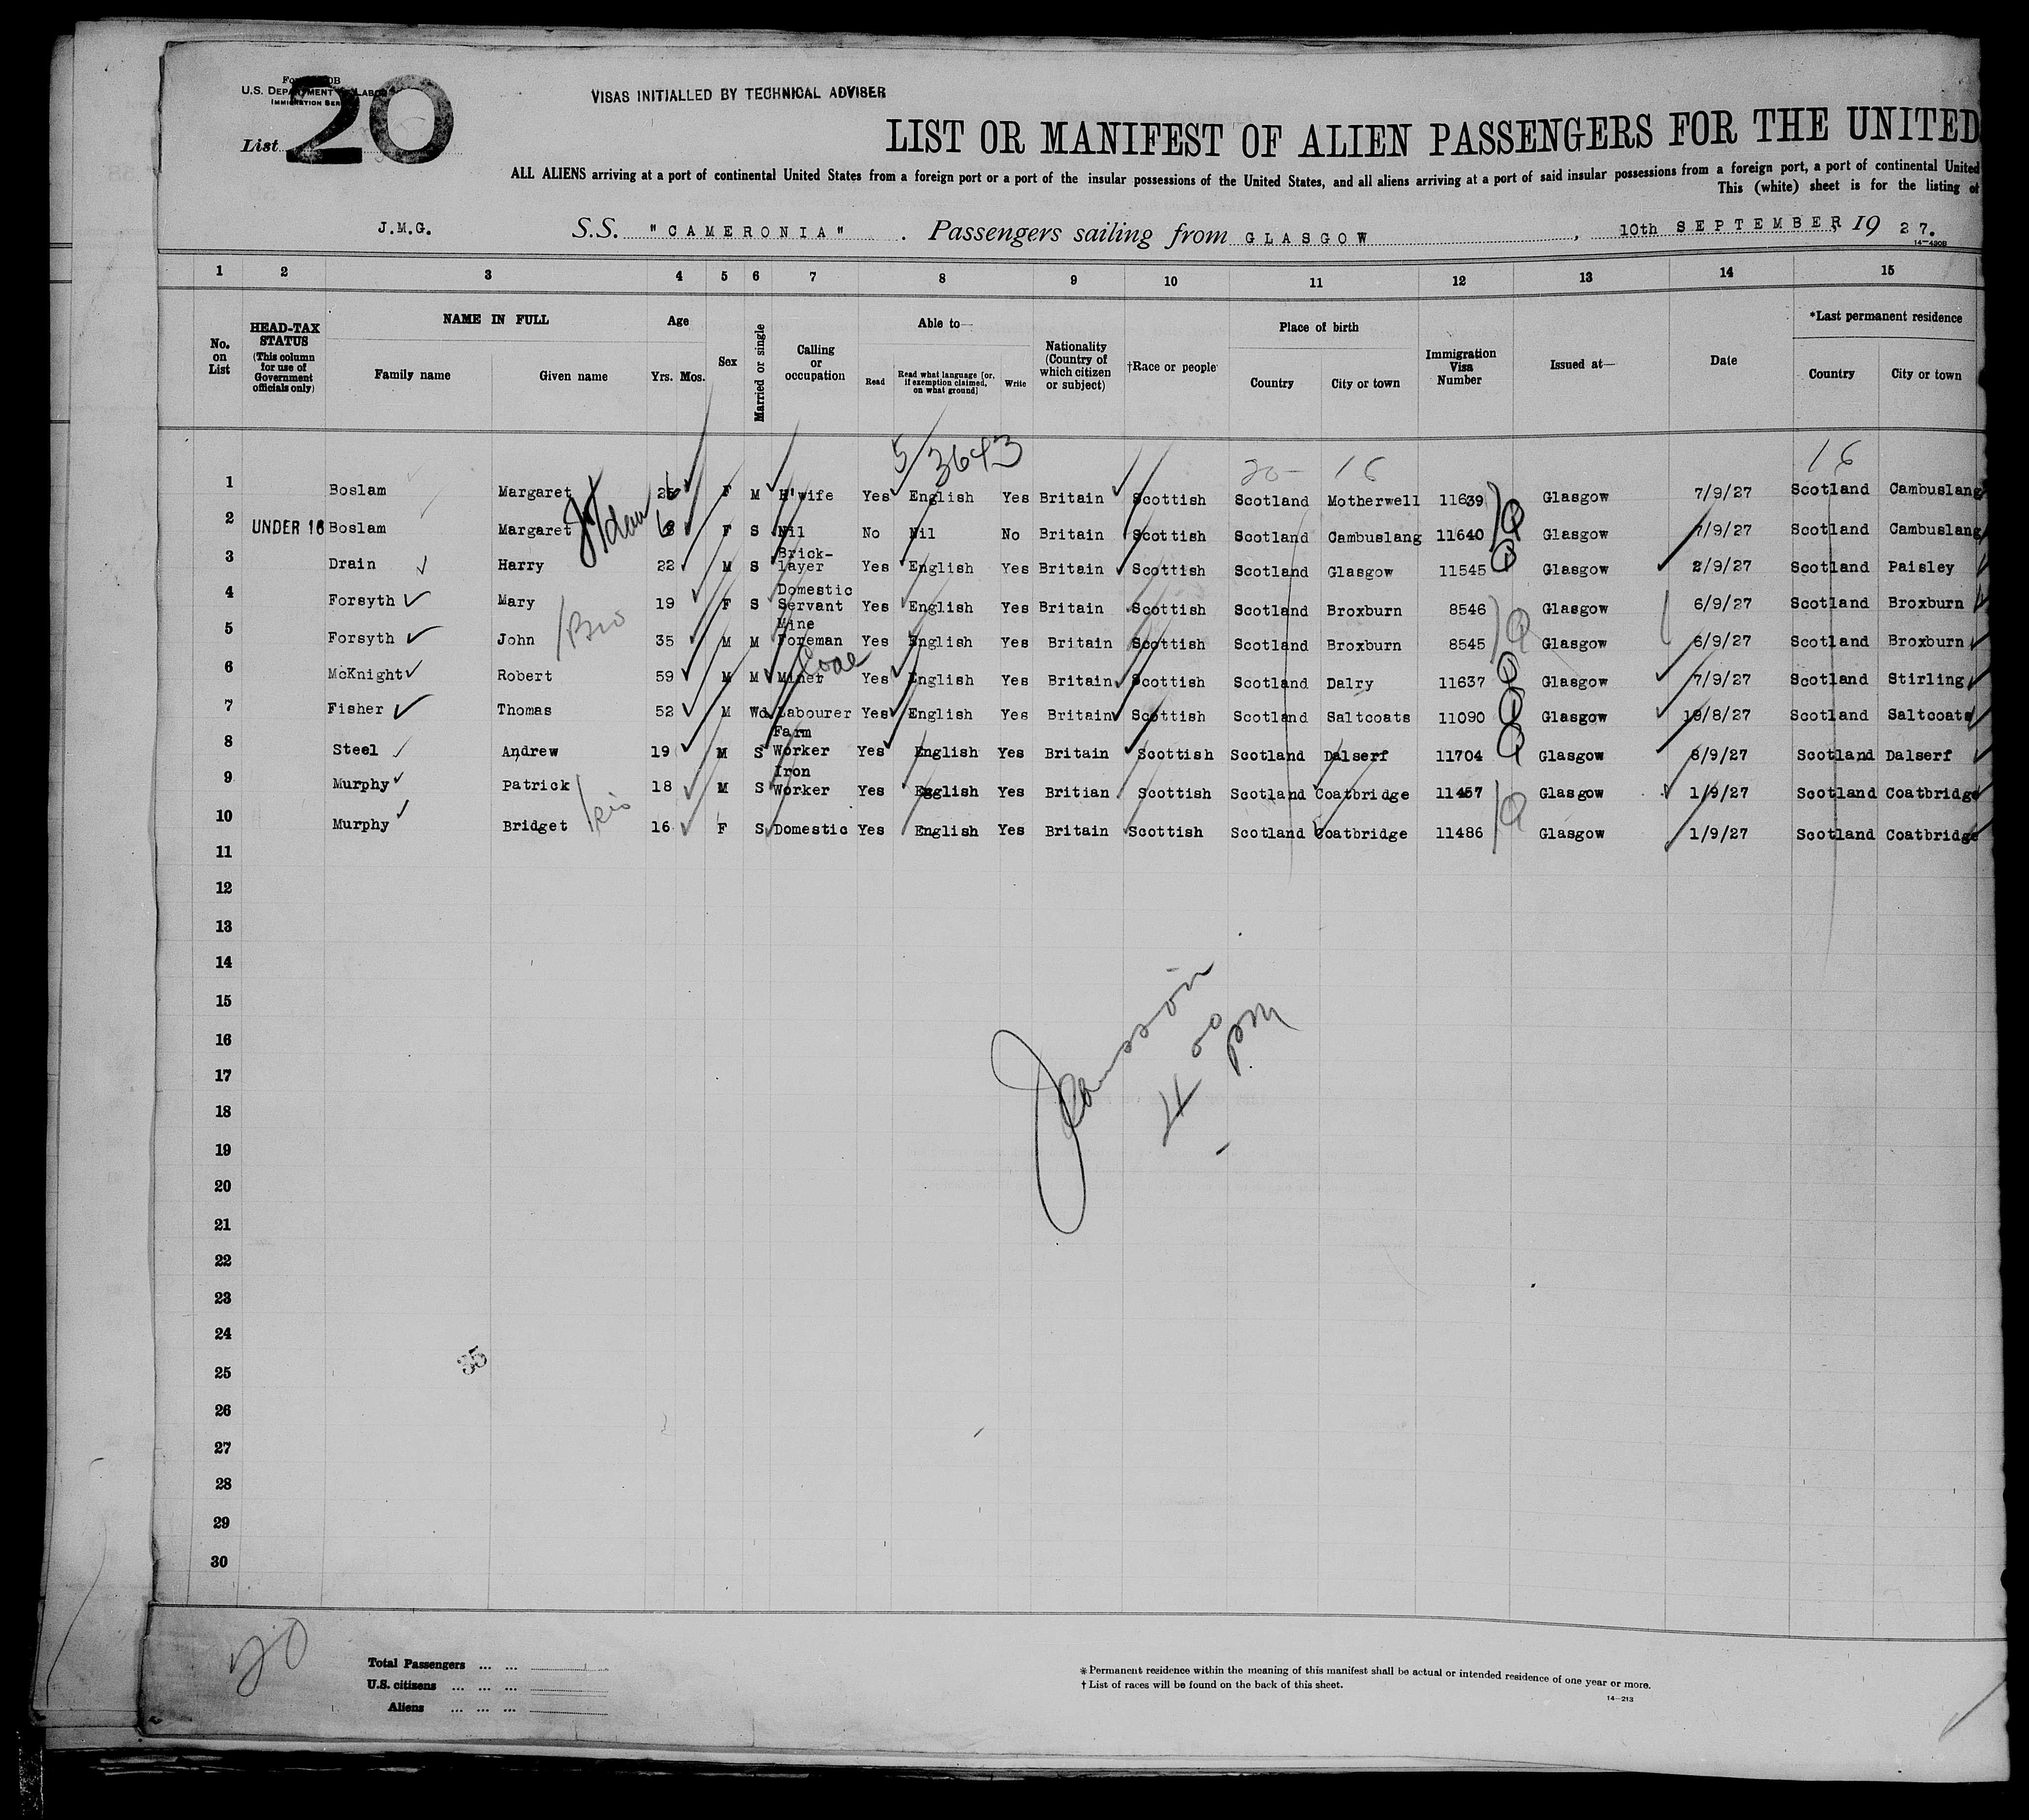 Form 430B
U.S. DEPARTMENT OF LABOR
IMMIGRATION SERVICE
List 20
VISAS INITIALLED BY TECHNICAL ADVISER
LIST OR MANIFEST OF ALIEN PASSENGERS FOR THE UNITED
ALL ALIENS arriving at a port of continental United States from a foreign port or a port of the insular possessions of the United States, and all aliens arriving at a port of said insular possessions from a foreign port, a port of continental United
This (white) sheet is for the listing of
J.M.G. S.S. "CAMERONIA" . Passengers sailing from GLASGOW , 10th SEPTEMBER, 19 27.
14—430B
1 2 3 4 5 6 7 8 9 10 11 12 13 14 15
No. on List
HEAD-TAX STATUS (This column for use of Government officials only)
NAME IN FULL
Family name Given name
Age
Yrs. Mos.
Sex
Married or single
Calling or occupation
Able to—
Read
Read what language [or, if exemption claimed, on what ground]
Write
Nationality (Country of which citizen or subject)
†Race or people
Place of birth
Country City or town
Immigration Visa Number
Issued at—
Date
*Last permanent residence
Country City or town
5/3643 20- 16 16
1 Boslam Margaret 26 F M H'wife Yes English Yes Britain Scottish Scotland Motherwell 11639 Glasgow 7/9/27 Scotland Cambuslang
2 UNDER 16 Boslam Margaret 6 F S Nil No Nil No Britain Scottish Scotland Cambuslang 11640 Glasgow 7/9/27 Scotland Cambuslang
3 Drain Harry 22 M S Brick-layer Yes English Yes Britain Scottish Scotland Glasgow 11545 Glasgow 2/9/27 Scotland Paisley
4 Forsyth Mary 19 F S Domestic Servant Yes English Yes Britain Scottish Scotland Broxburn 8546 Glasgow 6/9/27 Scotland Broxburn
5 Forsyth John 35 M M Mine Foreman Yes English Yes Britain Scottish Scotland Broxburn 8545 Glasgow 6/9/27 Scotland Broxburn
6 McKnight Robert 59 M M Coal Miner Yes English Yes Britain Scottish Scotland Dalry 11637 Glasgow 7/9/27 Scotland Stirling
7 Fisher Thomas 52 M Wd Labourer Yes English Yes Britain Scottish Scotland Saltcoats 11090 Glasgow 19/8/27 Scotland Saltcoats
8 Steel Andrew 19 M S Farm Worker Yes English Yes Britain Scottish Scotland Dalserf 11704 Glasgow 8/9/27 Scotland Dalserf
9 Murphy Patrick 18 M S Iron Worker Yes English Yes Britian Scottish Scotland Coatbridge 11457 Glasgow 1/9/27 Scotland Coatbridge
10 Murphy Bridget 16 F S Domestic Yes English Yes Britain Scottish Scotland Coatbridge 11486 Glasgow 1/9/27 Scotland Coatbridge
11
12
13
14
15
16
17
18
19
20
21
22
23
24
25
26
27
28
29
30
4 00 pm
35
20
Total Passengers ... ...
U.S. citizens ... ... ...
Aliens ... ... ...
* Permanent residence within the meaning of this manifest shall be actual or intended residence of one year or more.
† List of races will be found on the back of this sheet.
14—213